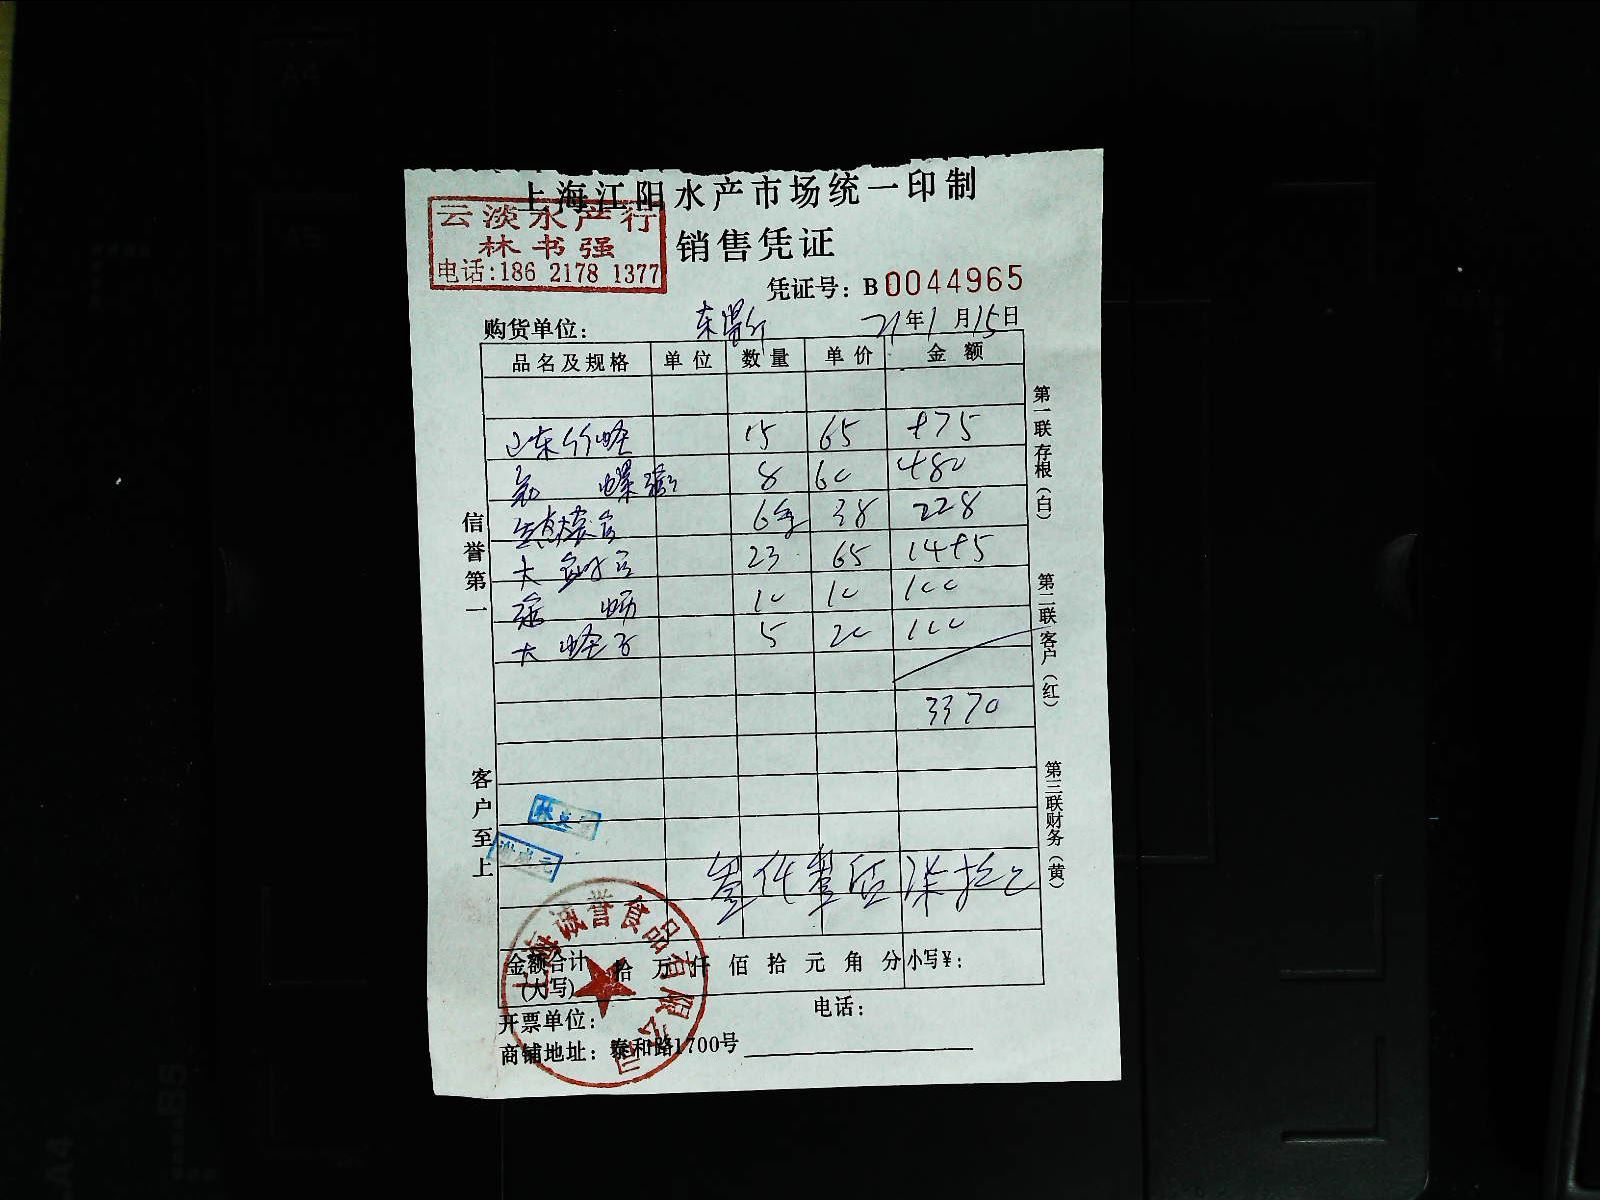 上海江阳水产市场统一印制
云淡水产行
林书强
电话:186 2178 1377
销售凭证
凭证号: B0044965
购货单位:
21年1月15日
品名及规格 单位 数量 单价 金额
山东竹蛏 15 65 975
8 60 480
6 38 228
大 23 65 1495
10 10 100
大蛏子 5 20 100
3370
叁仟叁佰柒拾元
金额合计(大写) 拾万仟佰拾元角分 小写¥:
开票单位: 电话:
商铺地址: 泰和路1700号
信誉第一
客户至上
第一联存根(白)
第二联客户(红)
第三联财务(黄)
上海诚誉食品有限公司